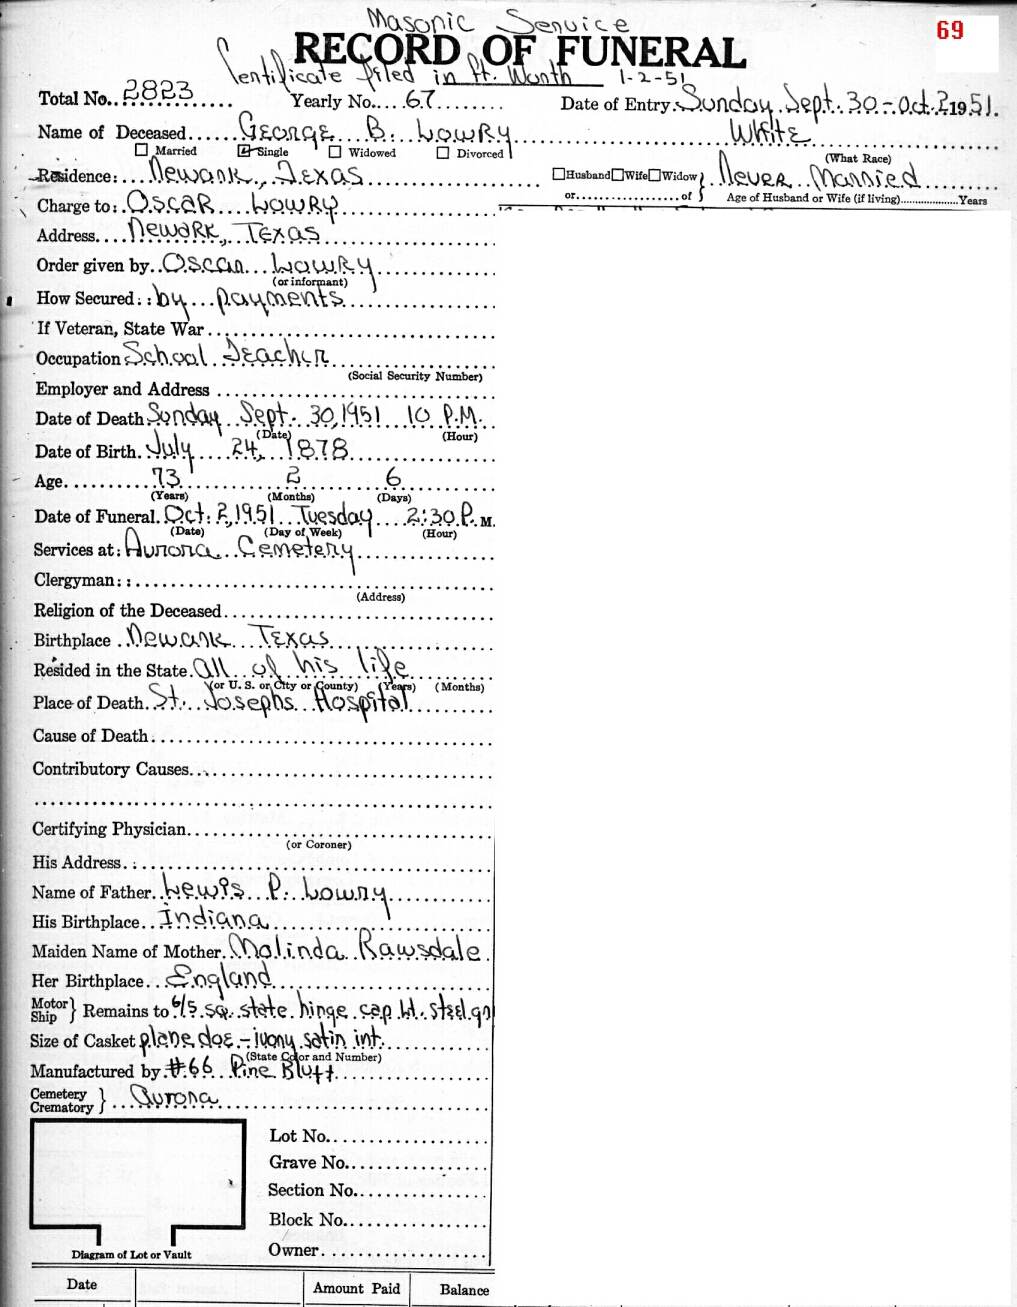 Masonic Service
69
RECORD OF FUNERAL
Certificate filed in Ft. Worth 1-2-51
Total No. 2823 Yearly No. 67 Date of Entry Sunday Sept. 30 - Oct. 2 1951.
Name of Deceased George B. Lowry White
Married Single Widowed Divorced (What Race)
Residence: Newark, Texas Husband Wife Widow or of } Never Married
Age of Husband or Wife (if living) Years
Charge to: Oscar Lowry
Address Newark, Texas
Order given by Oscar Lowry
(or informant)
How Secured: by payments
If Veteran, State War
Occupation School Teacher
(Social Security Number)
Employer and Address
Date of Death Sunday Sept. 30, 1951 10 P.M.
(Date) (Hour)
Date of Birth July 24, 1878
Age 73 2 6
(Years) (Months) (Days)
Date of Funeral Oct. 2, 1951 Tuesday 2:30 P.M.
(Date) (Day of Week) (Hour)
Services at: Aurora Cemetery
Clergyman:
(Address)
Religion of the Deceased
Birthplace Newark Texas
Resided in the State all of his life
(or U. S. or City or County) (Years) (Months)
Place of Death St. Josephs Hospital
Cause of Death
Contributory Causes
Certifying Physician
(or Coroner)
His Address
Name of Father Lewis P. Lowry
His Birthplace Indiana
Maiden Name of Mother Malinda Rawsdale
Her Birthplace England
Motor Ship } Remains to 6/5 sq. state hinge cap lt. steel gr
Size of Casket plane doe - ivory satin int.
(State Color and Number)
Manufactured by #66 Pine Bluff
Cemetery Crematory } Aurora
Lot No.
Grave No.
Section No.
Block No.
Owner
Diagram of Lot or Vault
Date Amount Paid Balance